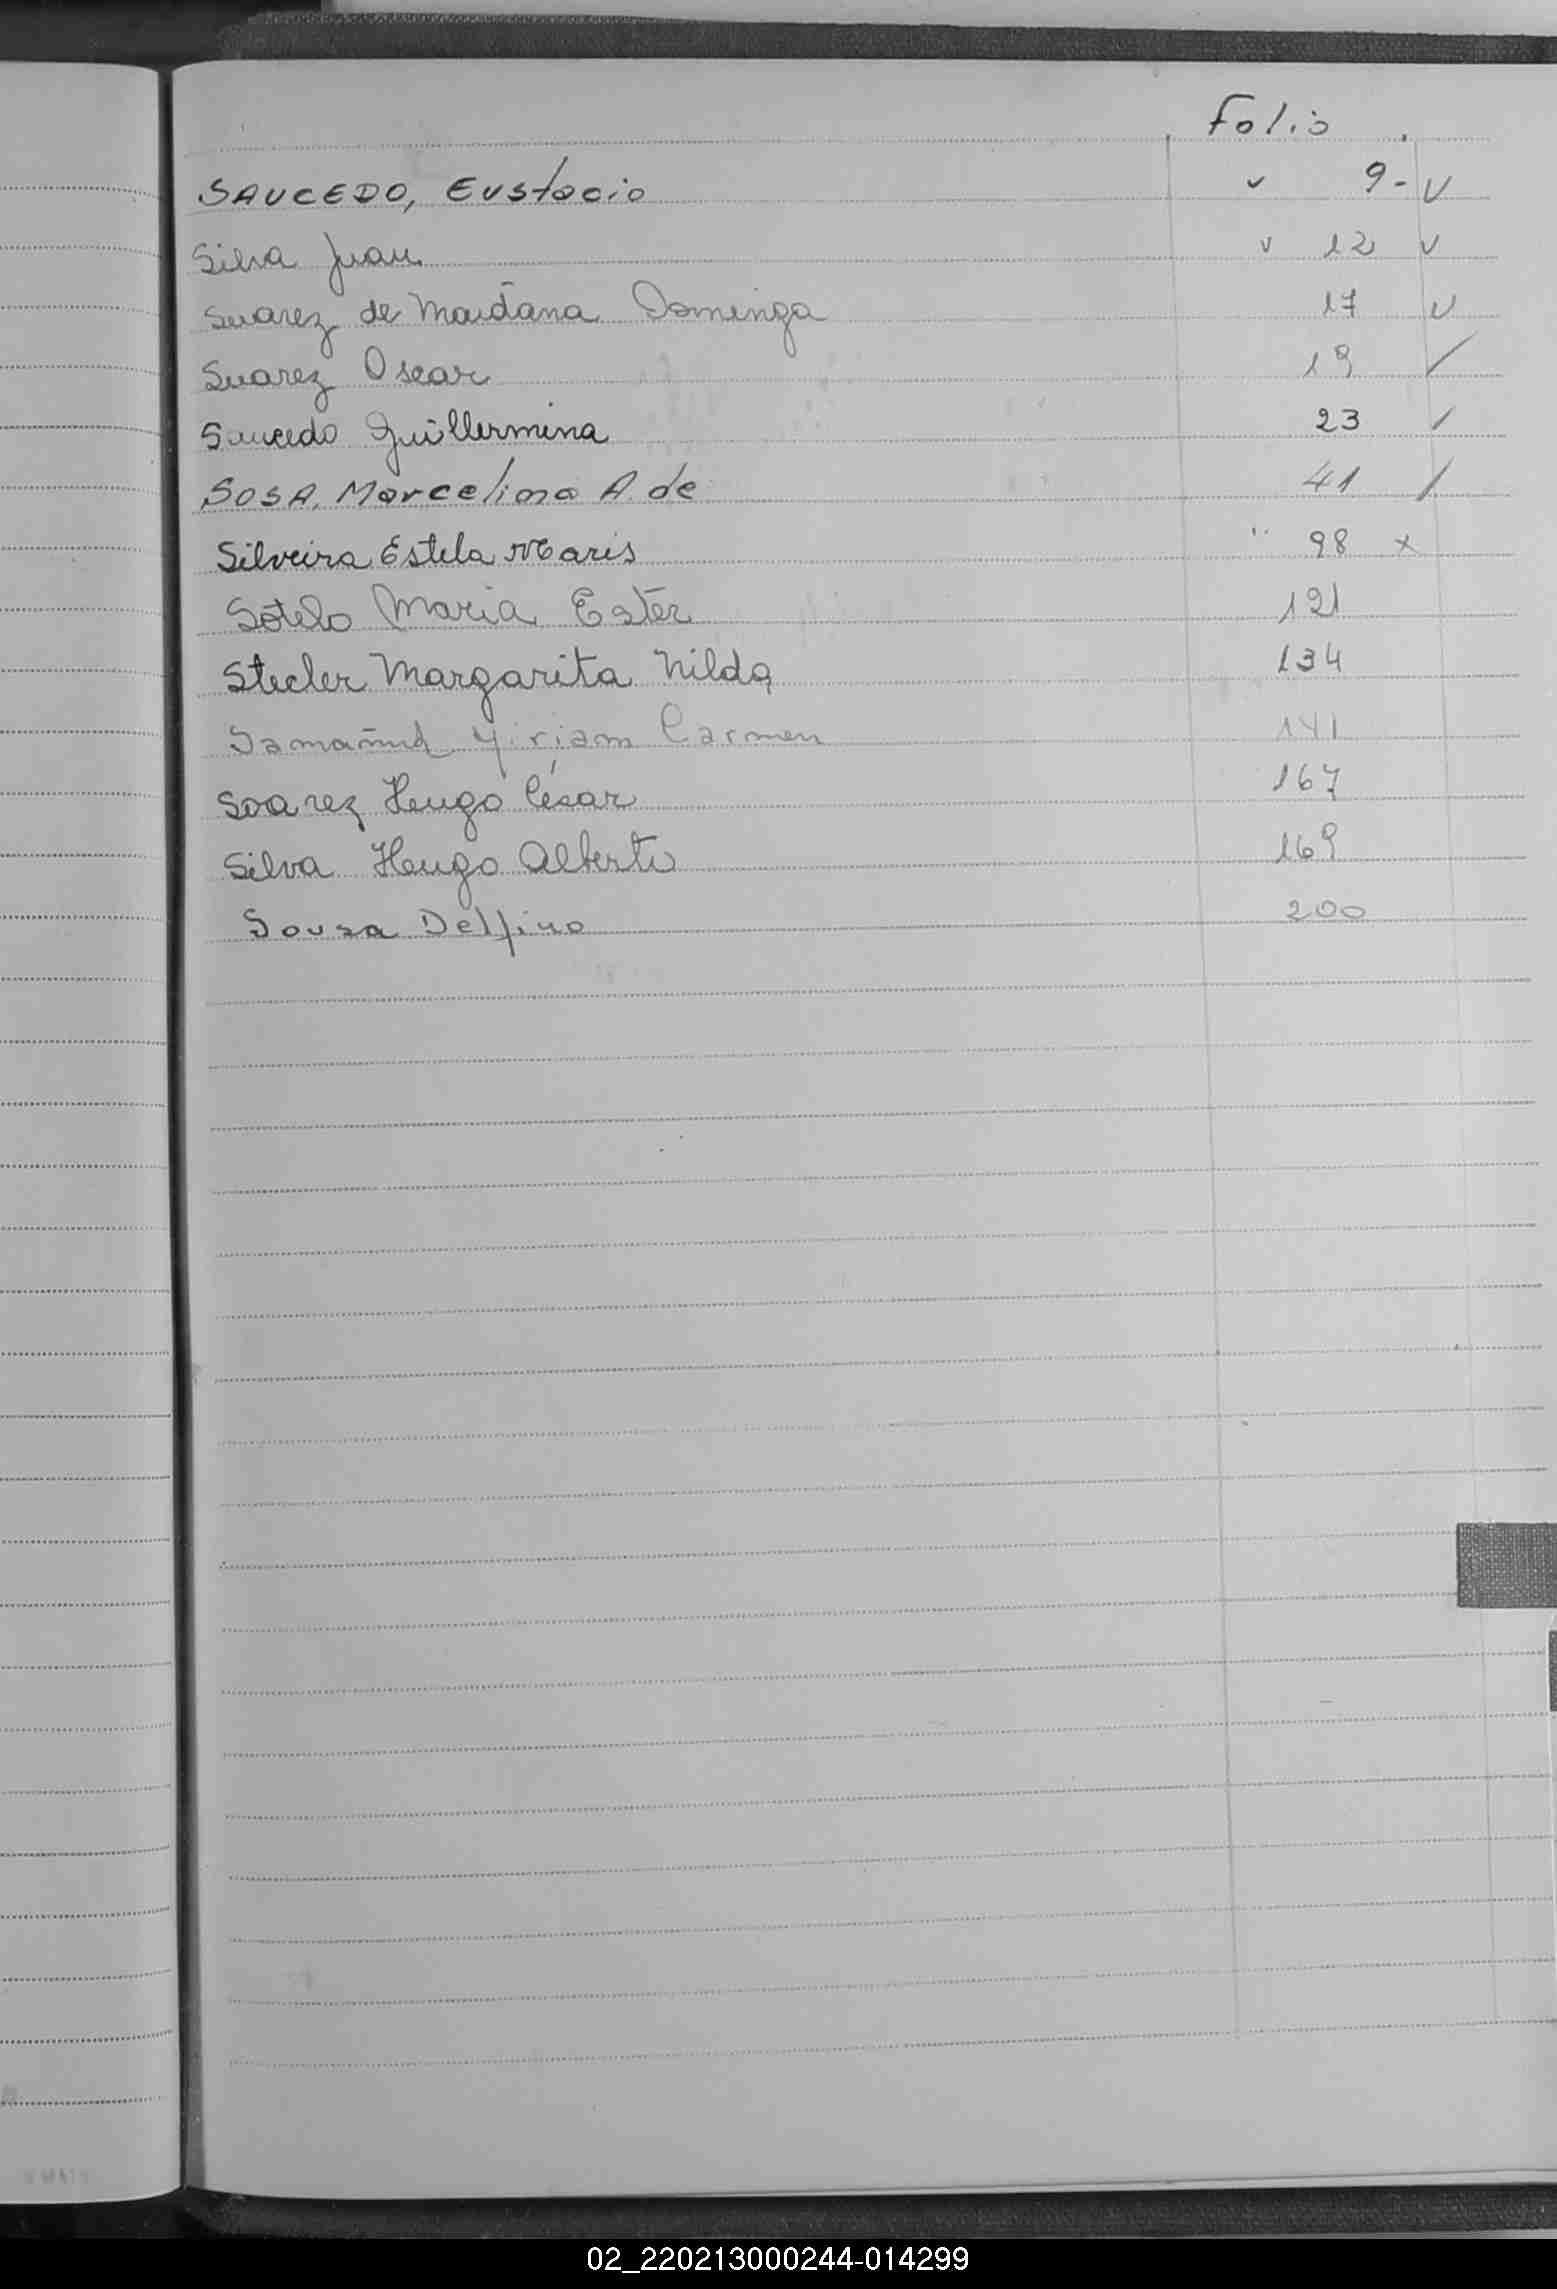 Folio
SAUCEDO, Eustacio v 9- v
Silva Juan v 12 v
Suarez de Maidana Dominga 17 v
Suarez Oscar 19 /
Saucedo Guillermina 23 /
SOSA, Marcelina A. de 41 /
Silveira Estela Maris " 98 x
Sotelo Maria Ester 121
Stecler Margarita Nilda 134
Yiriam Carmen 141
Soarez Hugo César 167
Silva Hugo Alberto 169
Sousa Delfino 200
02_220213000244-014299